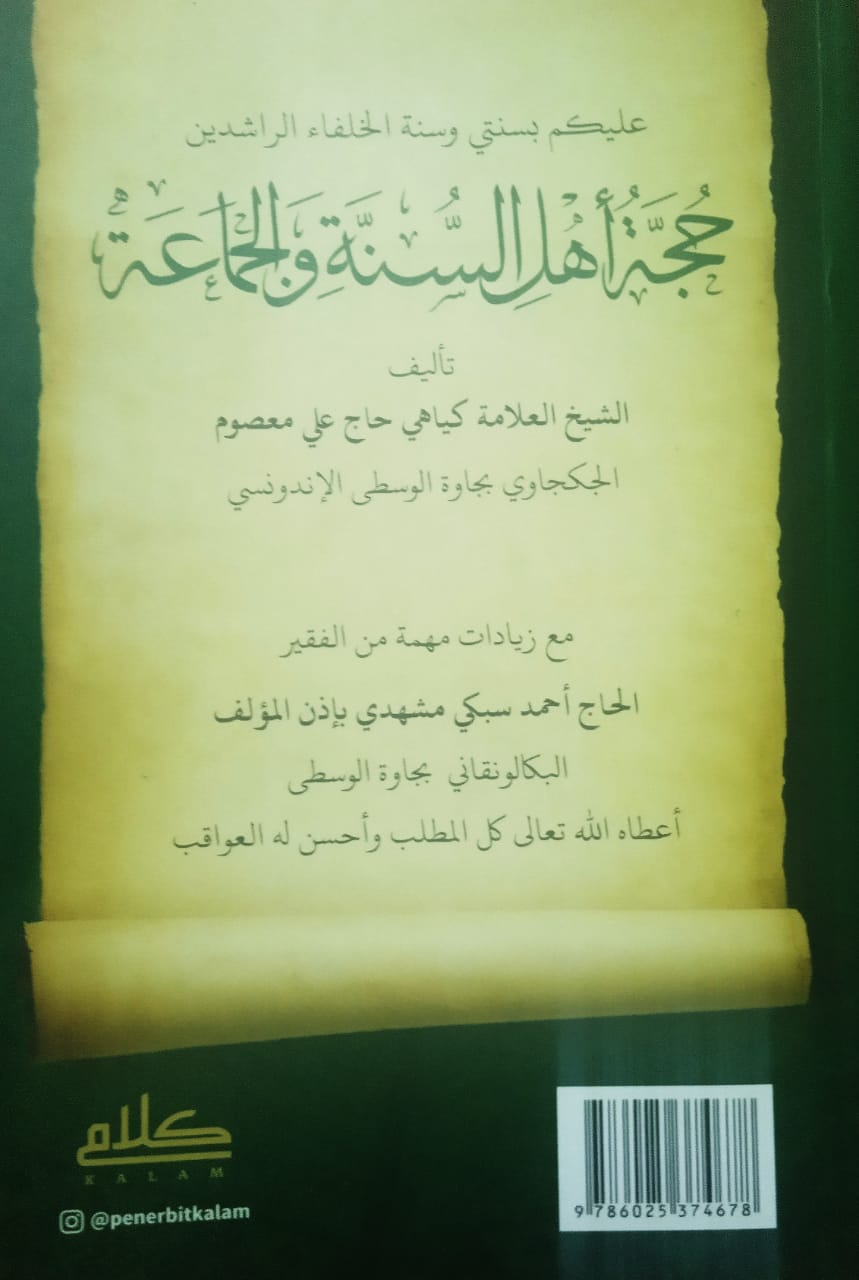 عليكم بسنتي وسنة الخلفاء الراشدين
حُجَّةُ أَهْلِ السُّنَّةِ وَالجَمَاعَة
تأليف
الشيخ العلامة كياهي حاج علي معصوم
الجكجاوي بجاوة الوسطى الإندونسي
مع زيادات مهمة من الفقير
الحاج أحمد سبكي مشهدي بإذن المؤلف
البكالونقاني بجاوة الوسطى
أعطاه الله تعالى كل المطلب وأحسن له العواقب
كلام
KALAM
@penerbitkalam
9 786025 374678